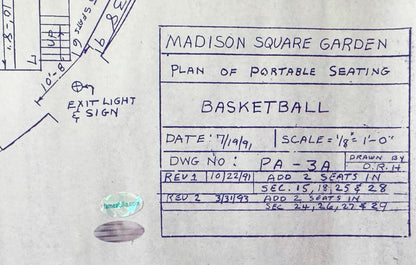 1.8'-10"
UP
6 SEATS
9
38
10'-8"
EXIT LIGHT
& SIGN
MADISON SQUARE GARDEN
PLAN OF PORTABLE SEATING
BASKETBALL
DATE: 7/19/91 SCALE = 1/8" = 1'-0"
DWG NO: PA - 3A DRAWN BY
D.R.H
REV 1 10/22/91 ADD 2 SEATS IN
SEC. 15, 18, 25 & 28
REV 2 3/31/93 ADD 2 SEATS IN
SEC 24, 26, 27 & 29